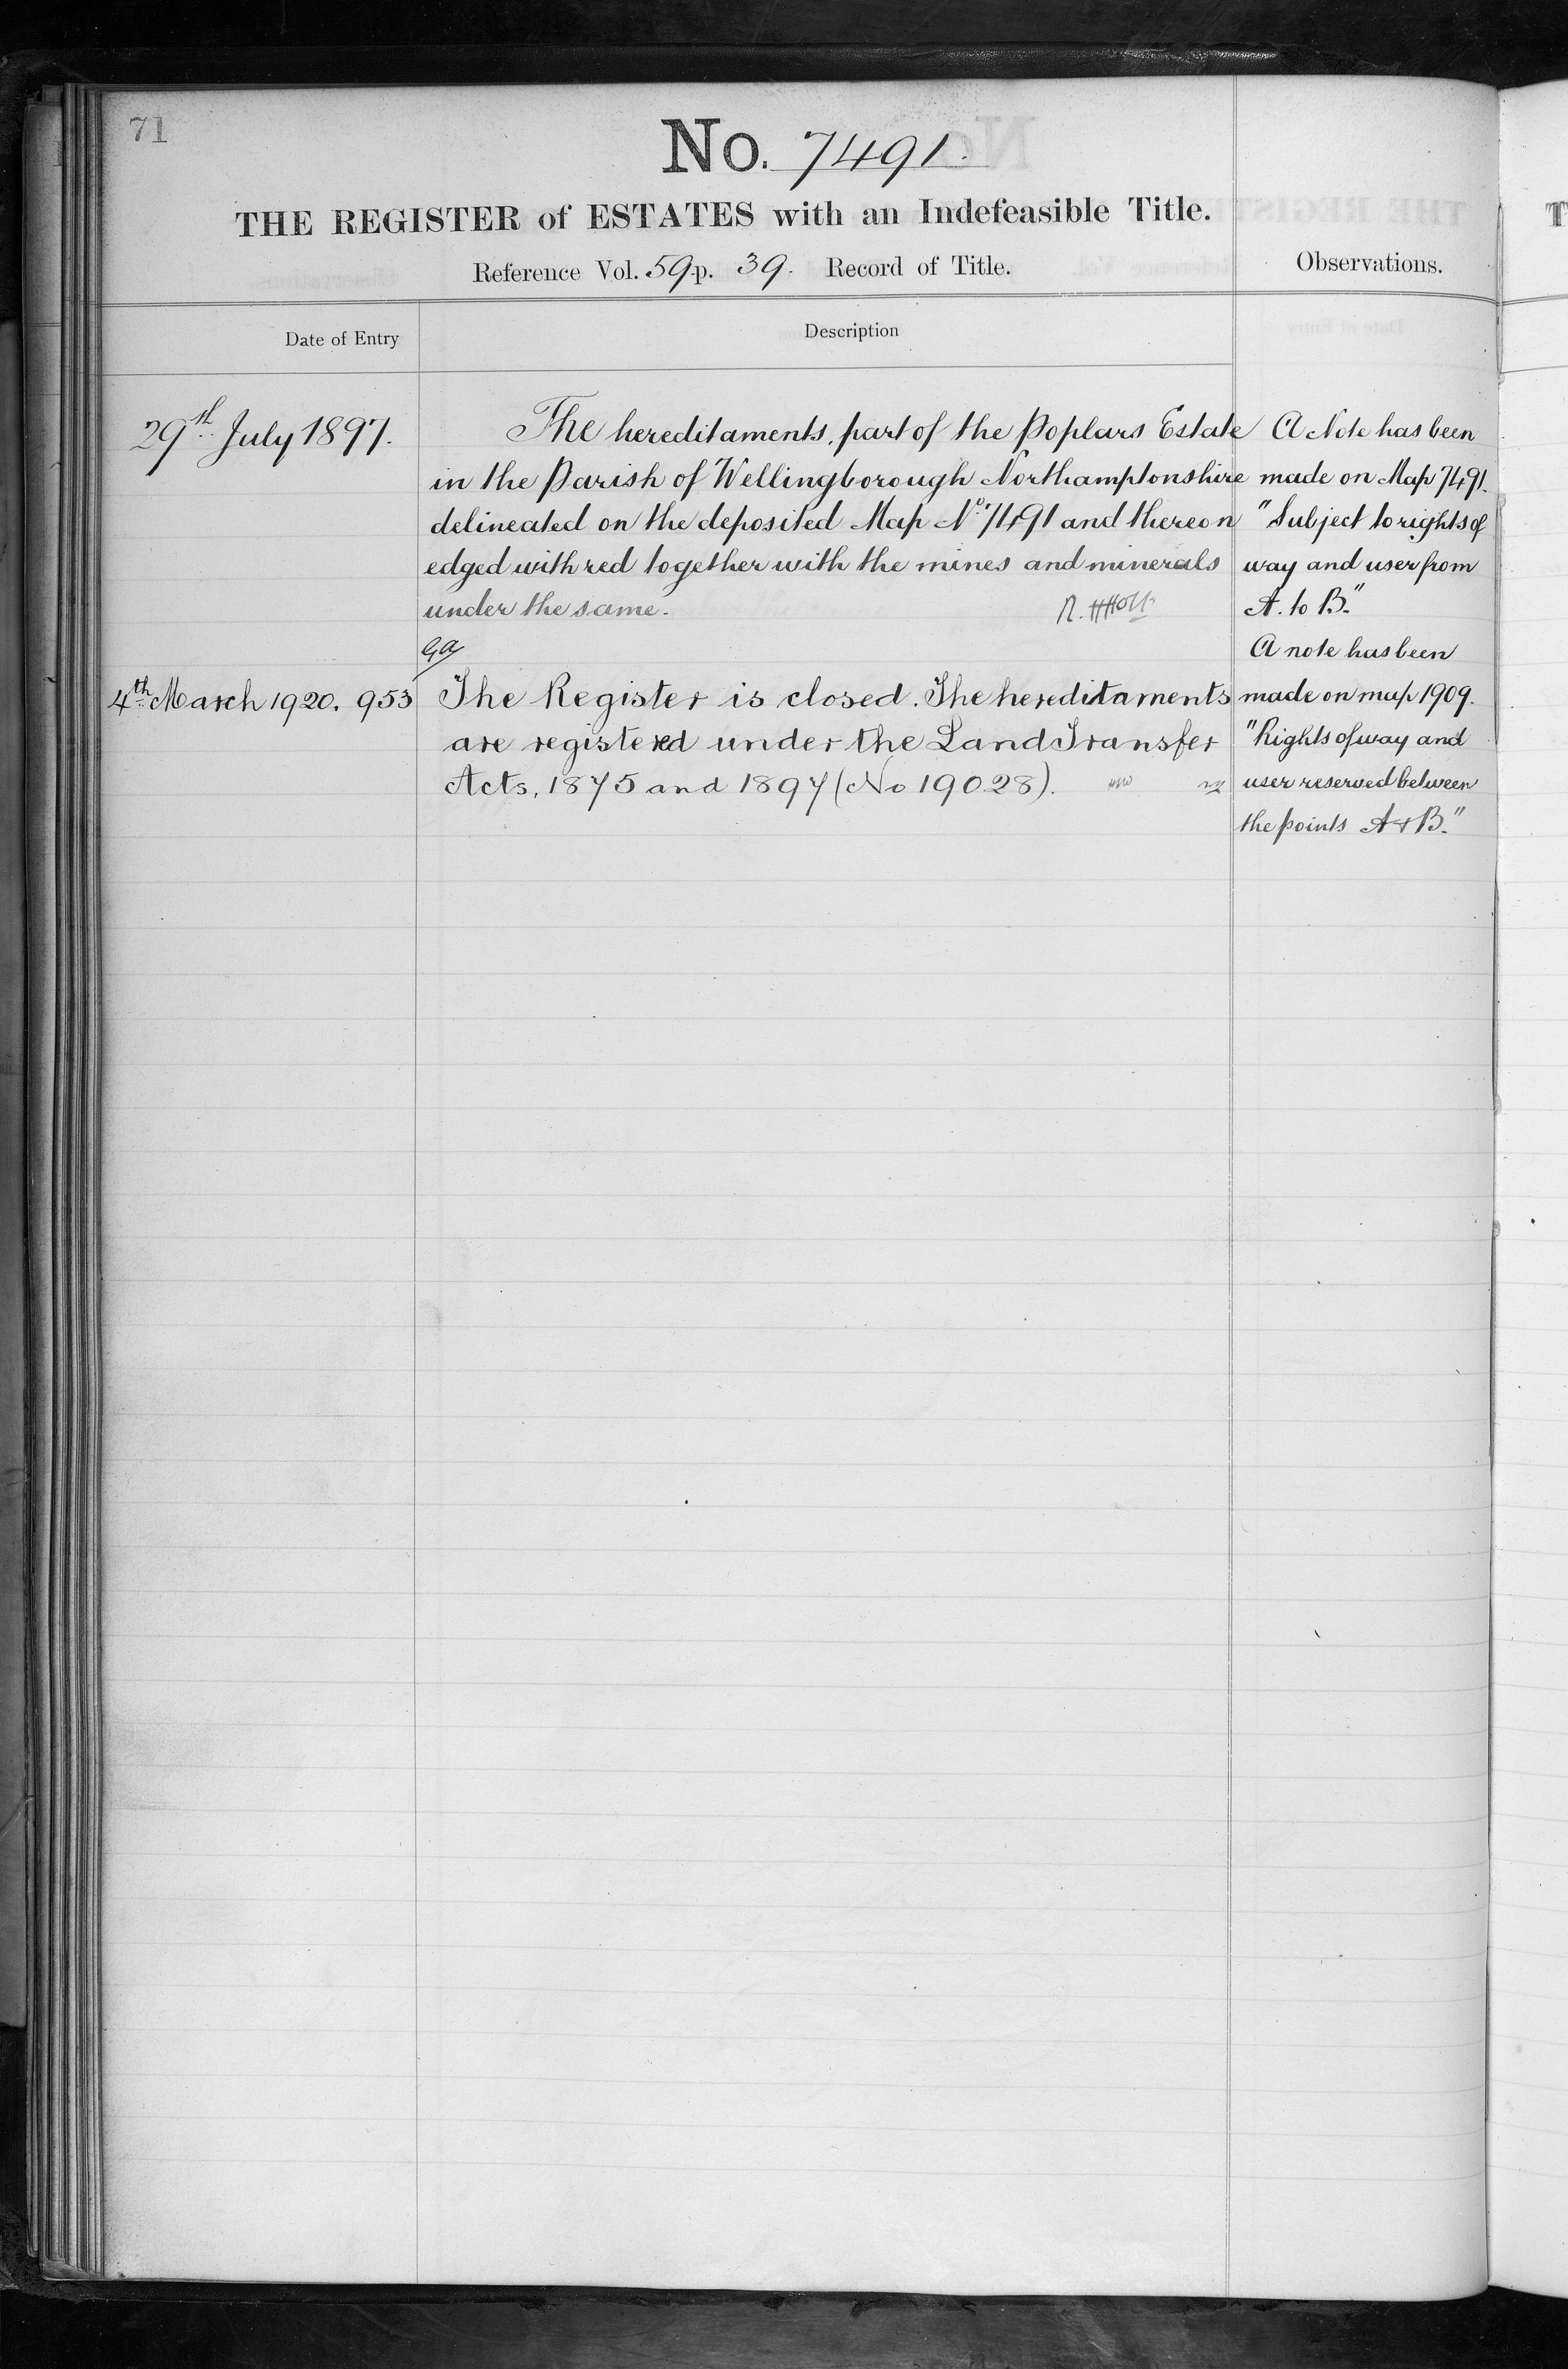 71
No. 7491.
THE REGISTER of ESTATES with an Indefeasible Title.
Reference Vol. 59. p. 39. Record of Title.
Observations.
Date of Entry
Description
29th July 1897.
The hereditaments, part of the Poplars Estate
in the Parish of Wellingborough Northamptonshire
delineated on the deposited Map No. 7491 and thereon
edged with red together with the mines and minerals
under the same.
4th March 1920. 953
The Register is closed. The hereditaments
are registered under the Land Transfer
Acts, 1875 and 1897 (No 19028).
A Note has been
made on Map 7491.
"Subject to rights of
way and user from
A. to B."
A note has been
made on map 1909.
"Rights of way and
user reserved between
the points A & B."